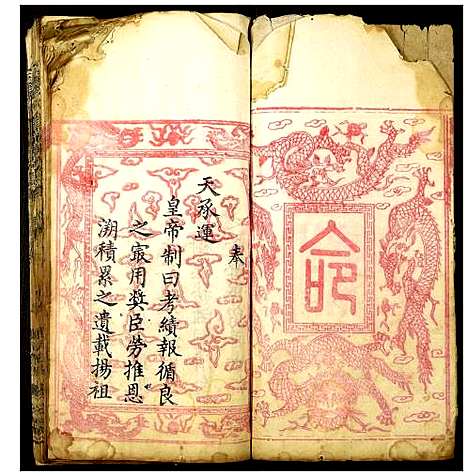 命
奉
天承運
皇帝制曰考績報循良
之最用奬臣勞推恩
溯積累之遺載揚祖